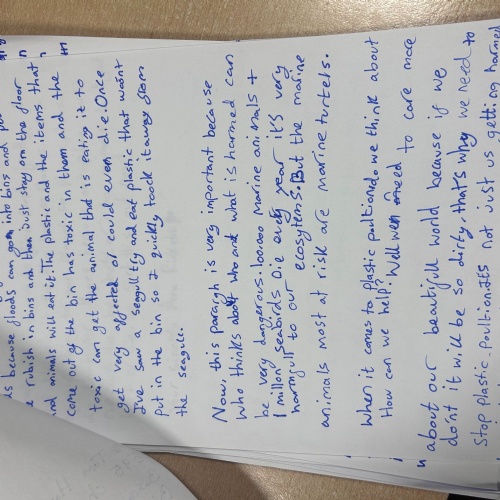 because floods can goen into bins and
rubish in bins and then Just stay on the floor
and animals will eat it. The plastic and the items that
come out of the bin has toxic in them and the
toxic can get the animal that is eating it to
get very affected of could even die. Once
I've saw a seagull try and eat plastic that wasn't
put in the bin so I quickly toock it away from
the seagull.
Now, this paragragh is very important because
who thinks about who and what is harmed can
be very dangerous. 100000 marine animals +
1 million seabirds Die every year it's very
harmfull to our ecosystems. But the marine
animals most at risk are marine turtels.
When it comes to plastic poulition do we think about
How can we help? Well we need to care more
about our beautifull world because if we
don't it will be so dirty, that's why we need to
stop plastic Poulition its not just us getting harmed